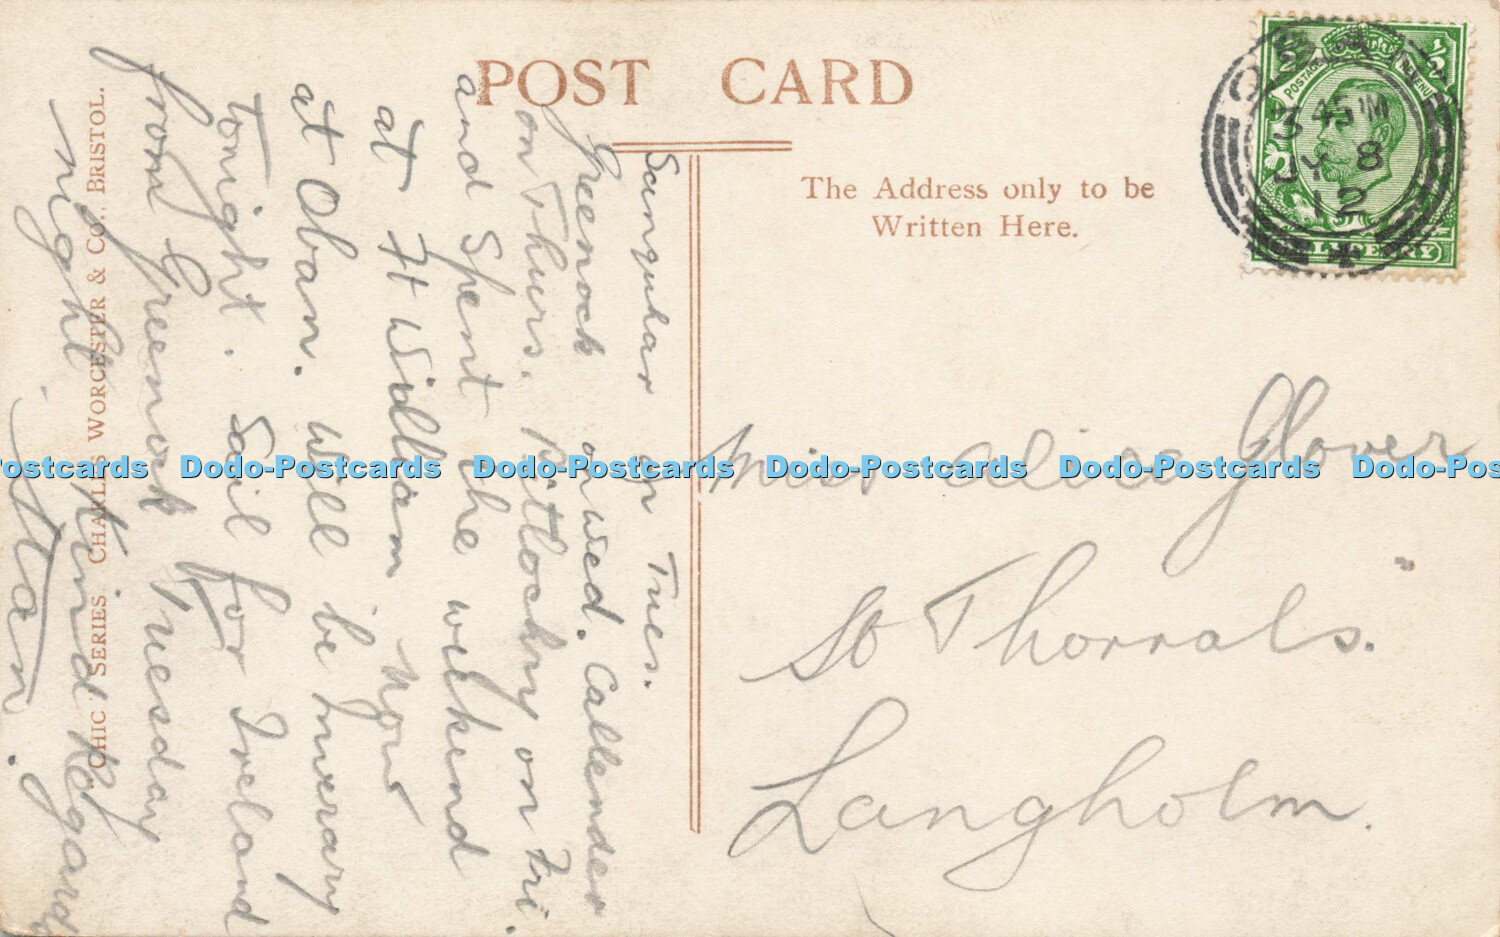 POST CARD
The Address only to be
Written Here.
45 M
JY 8
12
POSTAGE
HALFPENNY
Miss Alice Glover
Thorrals.
Langholm.
Sanquhar on Tues.
Greenock on Wed. Callender
on Thurs. Pitlochry on Fri.
and Spent the weekend
at Ft William now
at Oban. Will be Inverary
tonight. Sail for Ireland
from Greenock Tuesday
night. Kind Regards
Stan.
CHIC SERIES CHARLES WORCESTER & CO., BRISTOL.
Dodo-Postcards Dodo-Postcards Dodo-Postcards Dodo-Postcards